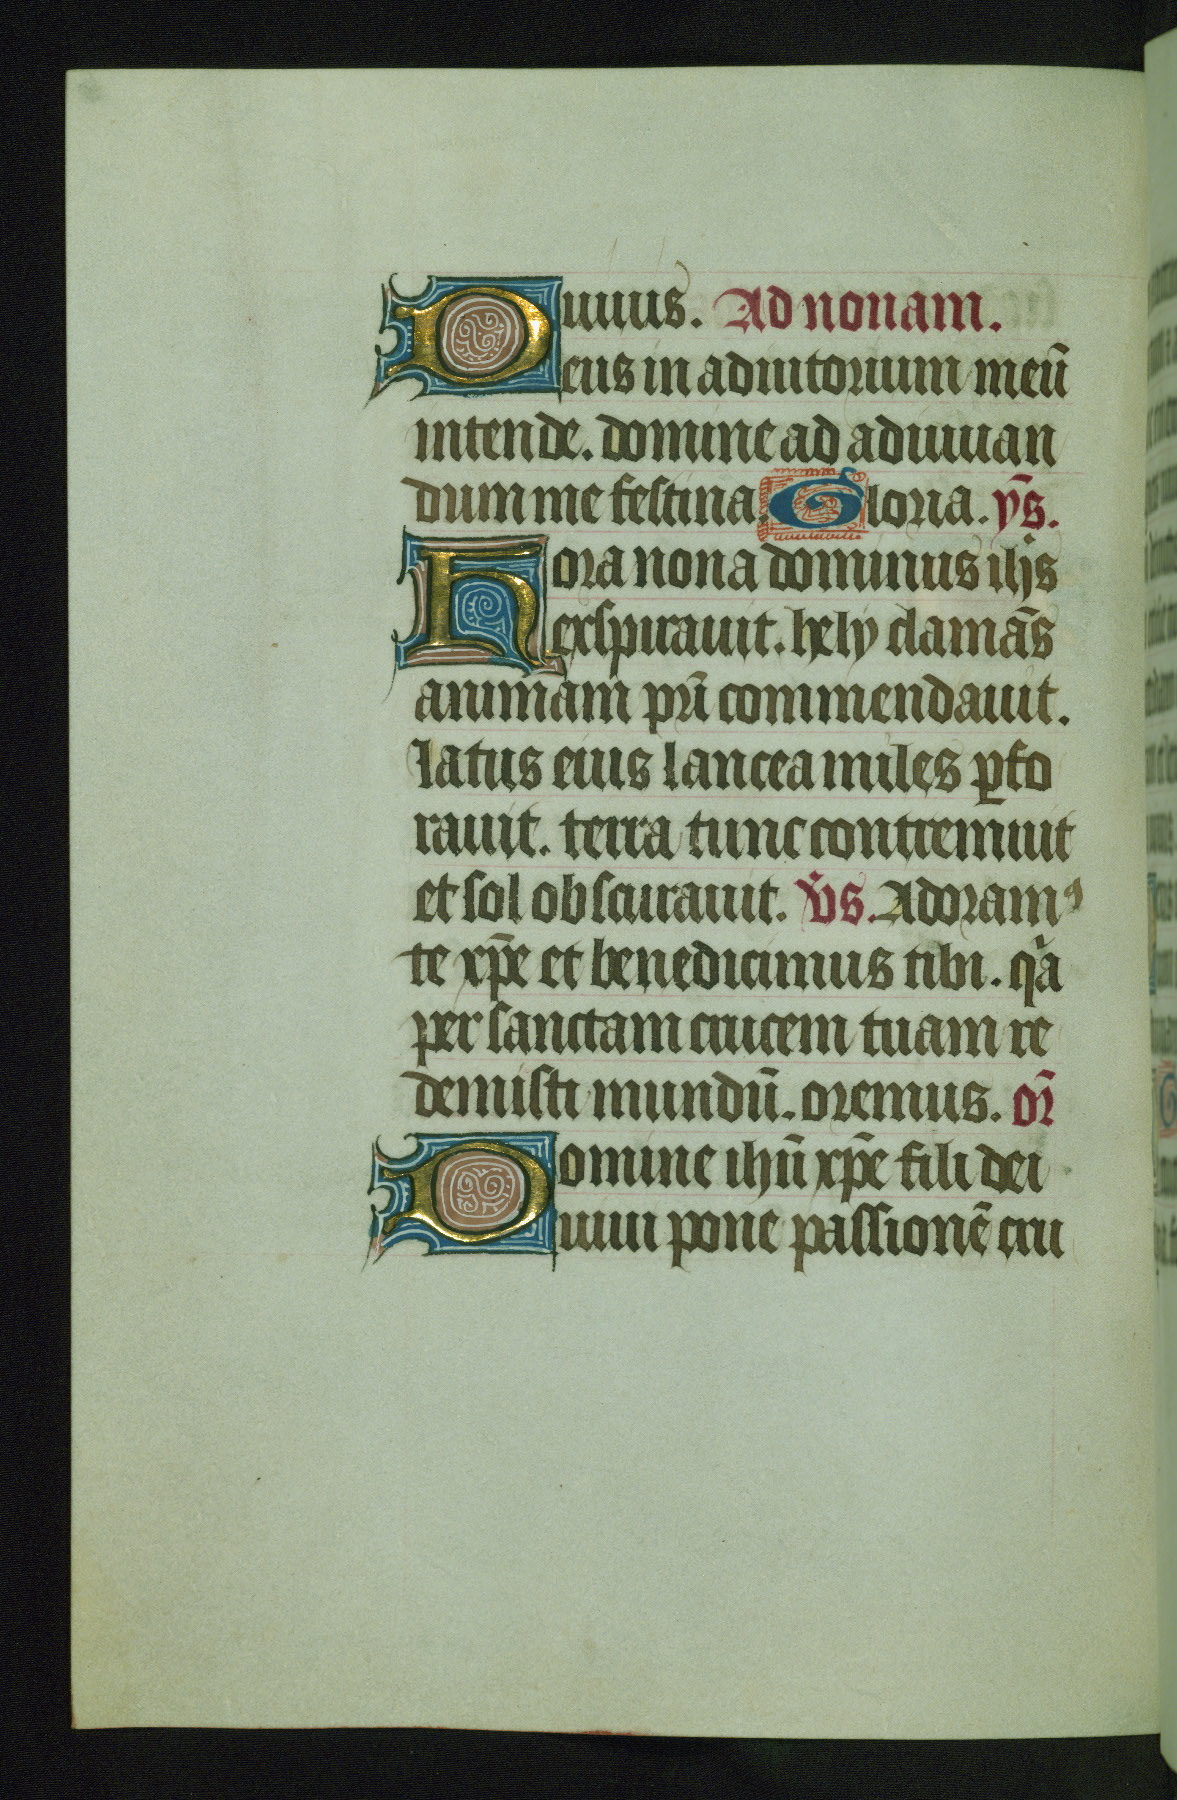 uiuus. Ad nonam.
Deus in adiutorium meū
intende. domine ad adiuuan
dum me festina Gloria. ẏs.
Hora nona dominus ihs̄
exspirauit. hely clamās
animam pr̄i commendauit.
latus eius lancea miles ꝑfo
rauit. terra tunc contremuit
et sol obscurauit. v̄s. Adoramꝰ
te xp̄e et benedicimus tibi. qͥa
per sanctam crucem tuam re
demisti mundū. oremus. or̄
Domine ihū xp̄e fili dei
uiui pone passionē cru